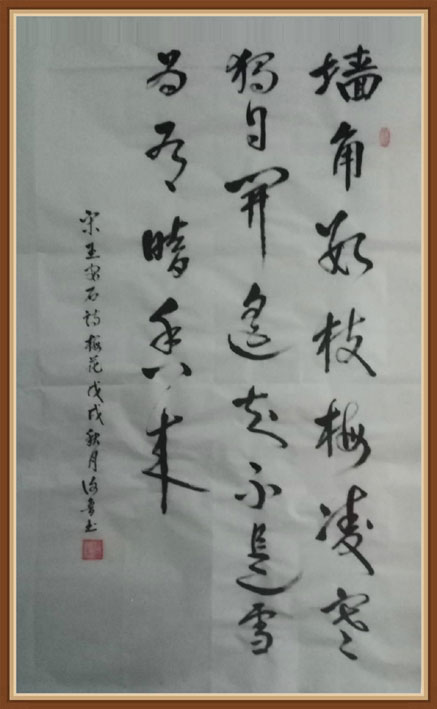 墙角数枝梅凌寒
獨自開遥知不是雪
为有暗香来
宋王安石诗梅花戊戌秋月